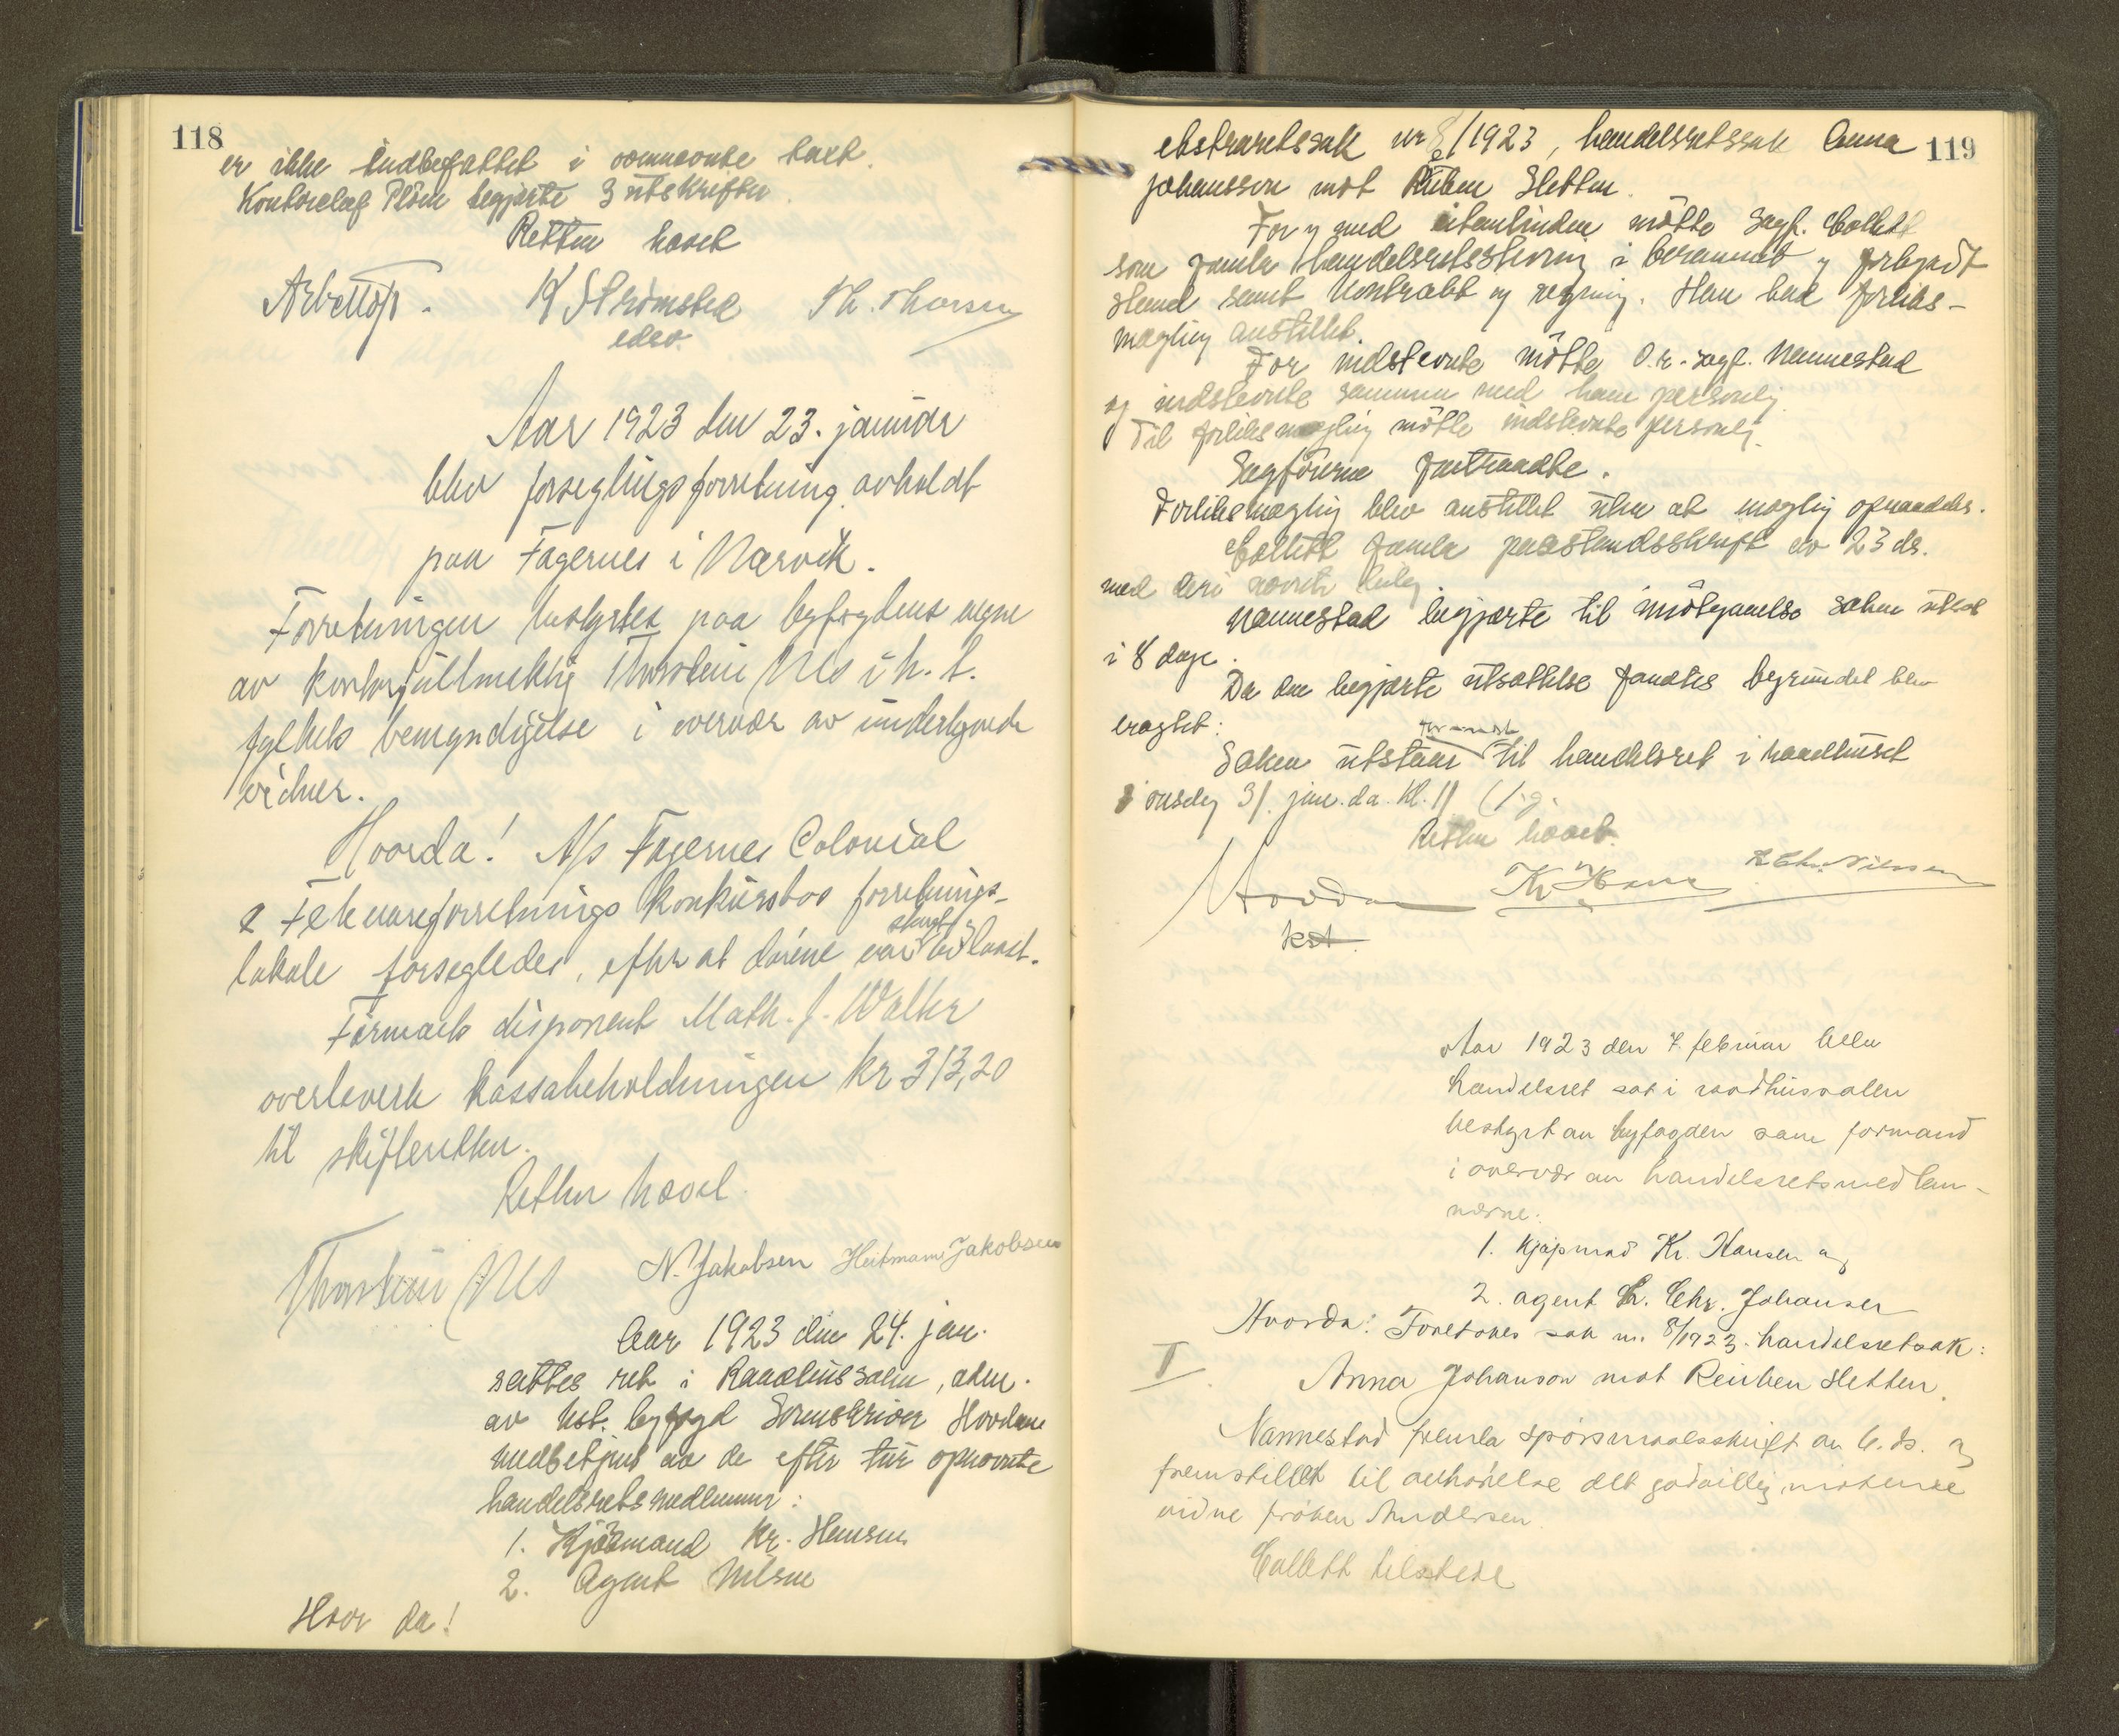 118
er ikke indbefattet i ovennævnte takt.
Kontorchef Olsen begjærte 3 utskrifter.
Retten hævet
K Strømsted Th. Thorsen
edsv.
Aar 1923 den 23. januar
blev forseglingsforretning avholdt
paa Fagernes i Narvik.
Forretningen bestyrtes paa byfogdens vegne
av kontorfuldmektig Thorstein Nes i h. t.
fylkets bemyndigelse i overvær av undertegnede
vidner.
Hvorda! A/s Fagernes Colonial
& Fetevareforretnings konkursbos forretnings-
lokale forsegledes, efter at dørene var stængt og laaset.
Firmaets disponent Math. J. Walter
overleverte kassabeholdningen kr 313,20
til skifteretten.
Retten hævet.
Thorstein Nes N. Jakobsen Heitmann Jakobsen
Aar 1923 den 24. jan.
sattes ret i Raadhussalen, adm.
av kst. byfogd Sorenskriver Hovdan
medbetjent av de efter tur opnævnte
handelsretsmedlemmer:
1. Kjøbmand Kr. Hansen
2. Agent Nilsen
Hvor da!
119
ekstraretssak nr 8/1923, handelsretssak Anna
Johansson mot Ruben Sletten.
For og med citantinden møtte Sagf. Collett
som fremla handelsretsstevning i berammet og forkyndt
stand samt kontrakt og regning. Han bad forliks-
mægling anstillet.
For indstevnte møtte O.r.sagf. Nannestad
og indstevnte sammen med ham personlig.
Til forliksmægling møtte indstevnte personlig.
Sagførerne fratraadte.
Forliksmægling blev anstillet uten at mægling opnaaddes.
Collett fremla paastandsskrift av 23 ds.
med deri nævnte bilag.
Nannestad begjærte til imøtegaaelse saken utsat
i 8 dage.
Da den begjærte utsættelse fandtes begrundet blev
eragtet:
Saken utstaar til handelsret i raadhuset
onsdag 31. jan. da. kl. 11
Retten hævet.
Hovdan Kr Hansen R Chr. Nilssen
kst.
Aar 1923 den 7. februar blev
handelsret sat i raadhussalen
bestyrt av byfogden som formand
i overvær av handelsretsmedlem-
merne:
1. kjøpmad Kr. Hansen og
2. agent Chr. Johanser
Hvorda: Foretokes sak nr. 8/1923. handelsretssak:
I. Anna Johanson mot Reuben Sletten.
Nannestad fremla spørsmaalsskrift av 6. ds. og
fremstillet til avhørelse det godvillig møtende
vidne frøken Andersen.
Collett tilstede